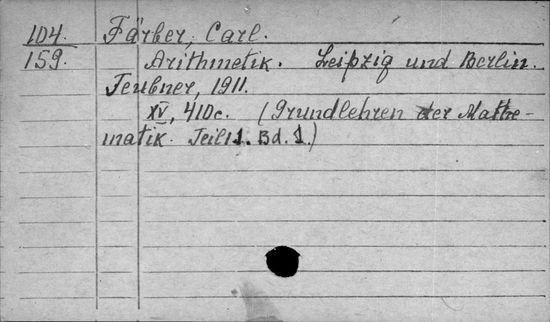 104. Färber, Carl.
159. Arithmetik. Leipzig und Berlin.
Teubner, 1911.
XV, 410c. (Grundlehren der Mathe-
matik. Teil 1. Bd. 1.)